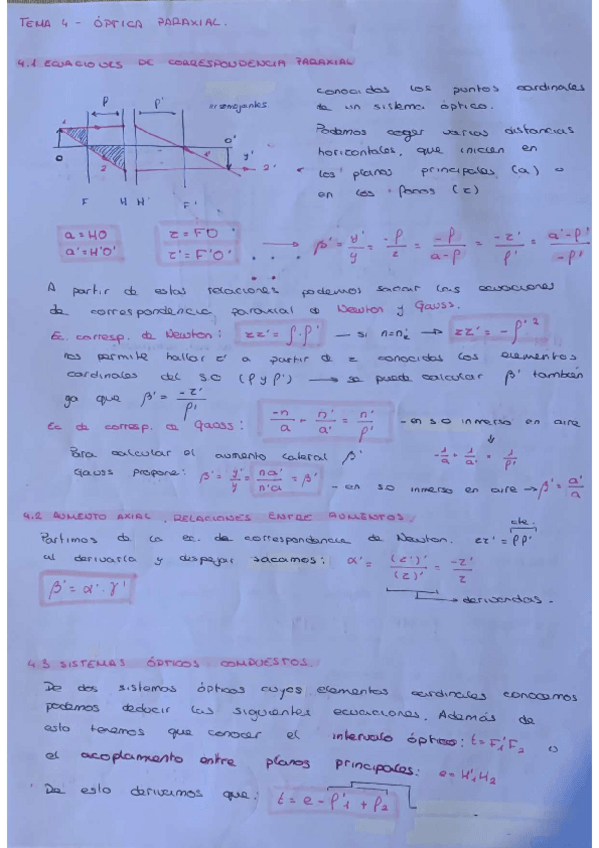 TEMA 4 - ÓPTICA PARAXIAL.
4.1 ECUACIONES DE CORRESPONDENCIA PARAXIAL
conocidos los puntos cardinales
de un sistema óptico.
Podemos coger varias distancias
horizontales, que inicien en
los planos principales (a) o
en los focos (z)
P P'
O O' y' 2 2'
F H H' F'
a = HO z = FO
a' = H'O' z' = F'O'
→ β' = y'/y = -f/z = -f/a-f = -z'/f' = a'-f'/-f'
A partir de estas relaciones podemos sacar las ecuaciones
de correspondencia paraxial de Newton y Gauss.
Ec. corresp. de Newton: zz' = f·f' — si n=n' → zz' = -f'²
nos permite hallar z' a partir de z conocidas los elementos
cardinales del SO (f y f') → se puede calcular β' también
ya que β' = -z'/f'
Ec de corresp. de Gauss: -n/a + n'/a' = n'/f' - en SO inmerso en aire
Para calcular el aumento lateral β' -1/a + 1/a' = 1/f'
Gauss propone: β' = y'/y = na'/n'a = β' - en SO inmerso en aire → β' = a'/a
4.2 AUMENTO AXIAL. RELACIONES ENTRE AUMENTOS.
cte.
Partimos de la ec. de correspondencia de Newton. zz' = ff'
al derivarla y despejar sacamos: α' = (z')'/(z)' = -z'/z
β' = α'·γ' → derivadas.
4.3 SISTEMAS ÓPTICOS COMPUESTOS.
De dos sistemas ópticos cuyos elementos cardinales conocemos
podemos deducir las siguientes ecuaciones. Además de
esto tenemos que conocer el intervalo óptico: t = F'₁F₂ o
el acoplamiento entre planos principales: e = H'₁H₂
De esto derivamos que: t = e - f'₁ + f₂